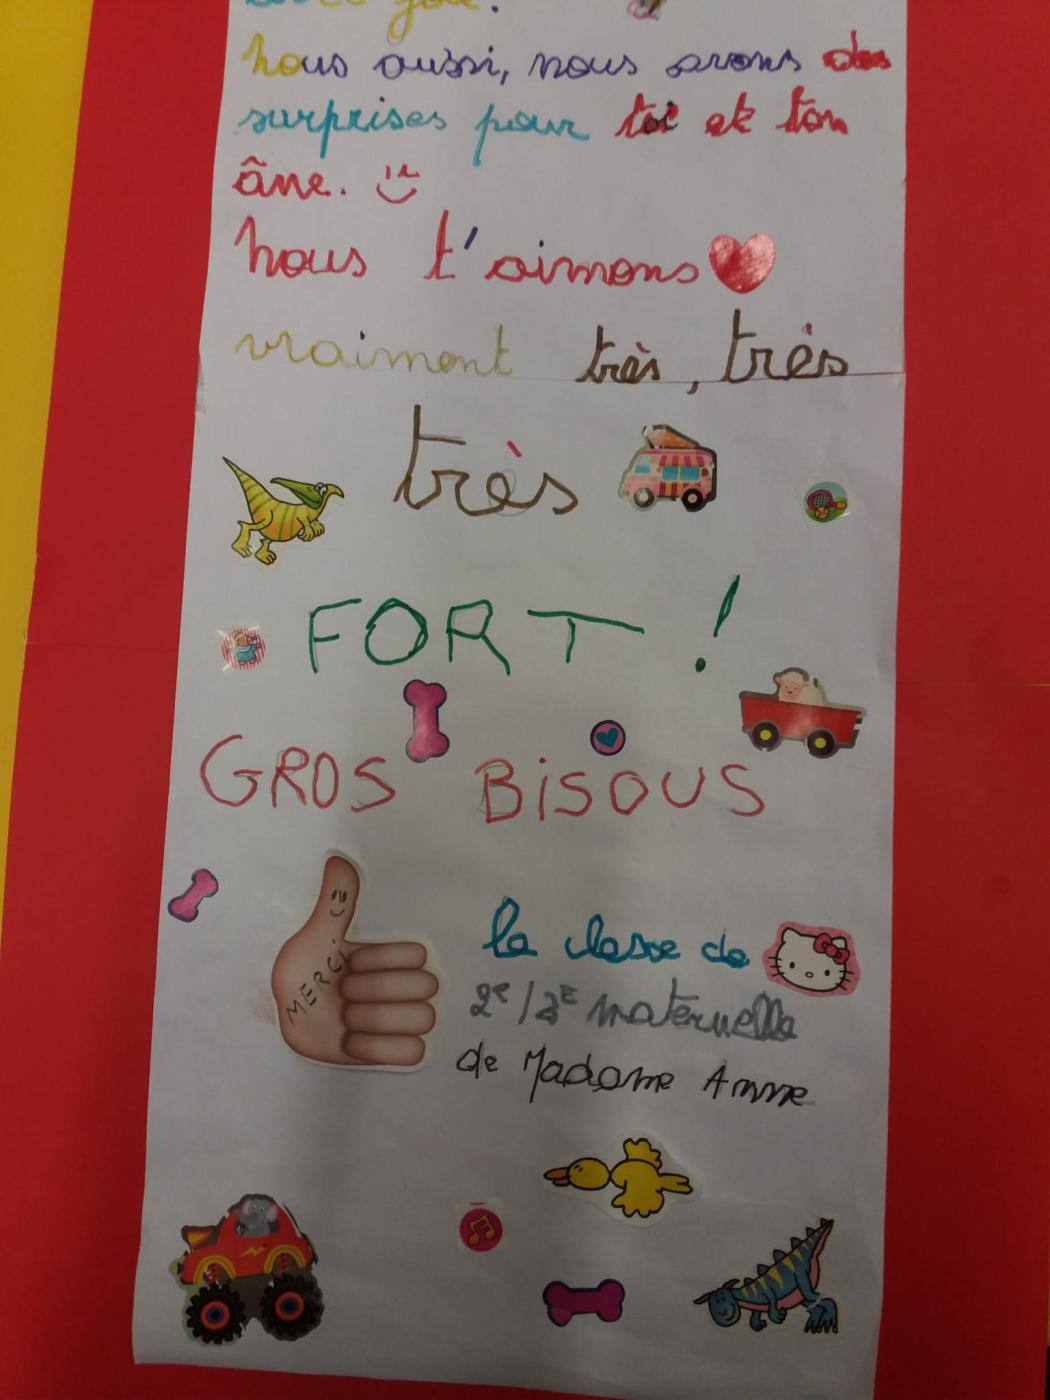 toute joie.
Nous aussi, nous avons des
surprises pour toi et ton
âne.
Nous t'aimons
vraiment très, très
très
FORT !
GROS BISOUS
MERCI
la classe de
2e/3E maternelle
de Madame Anne